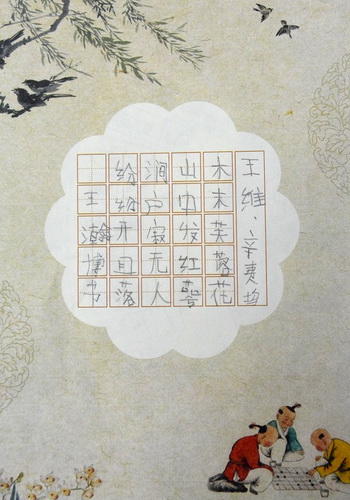 王维·辛夷均
木末芙蓉花
山中发红萼
涧户寂无人
纷纷开且落
王瀚博书